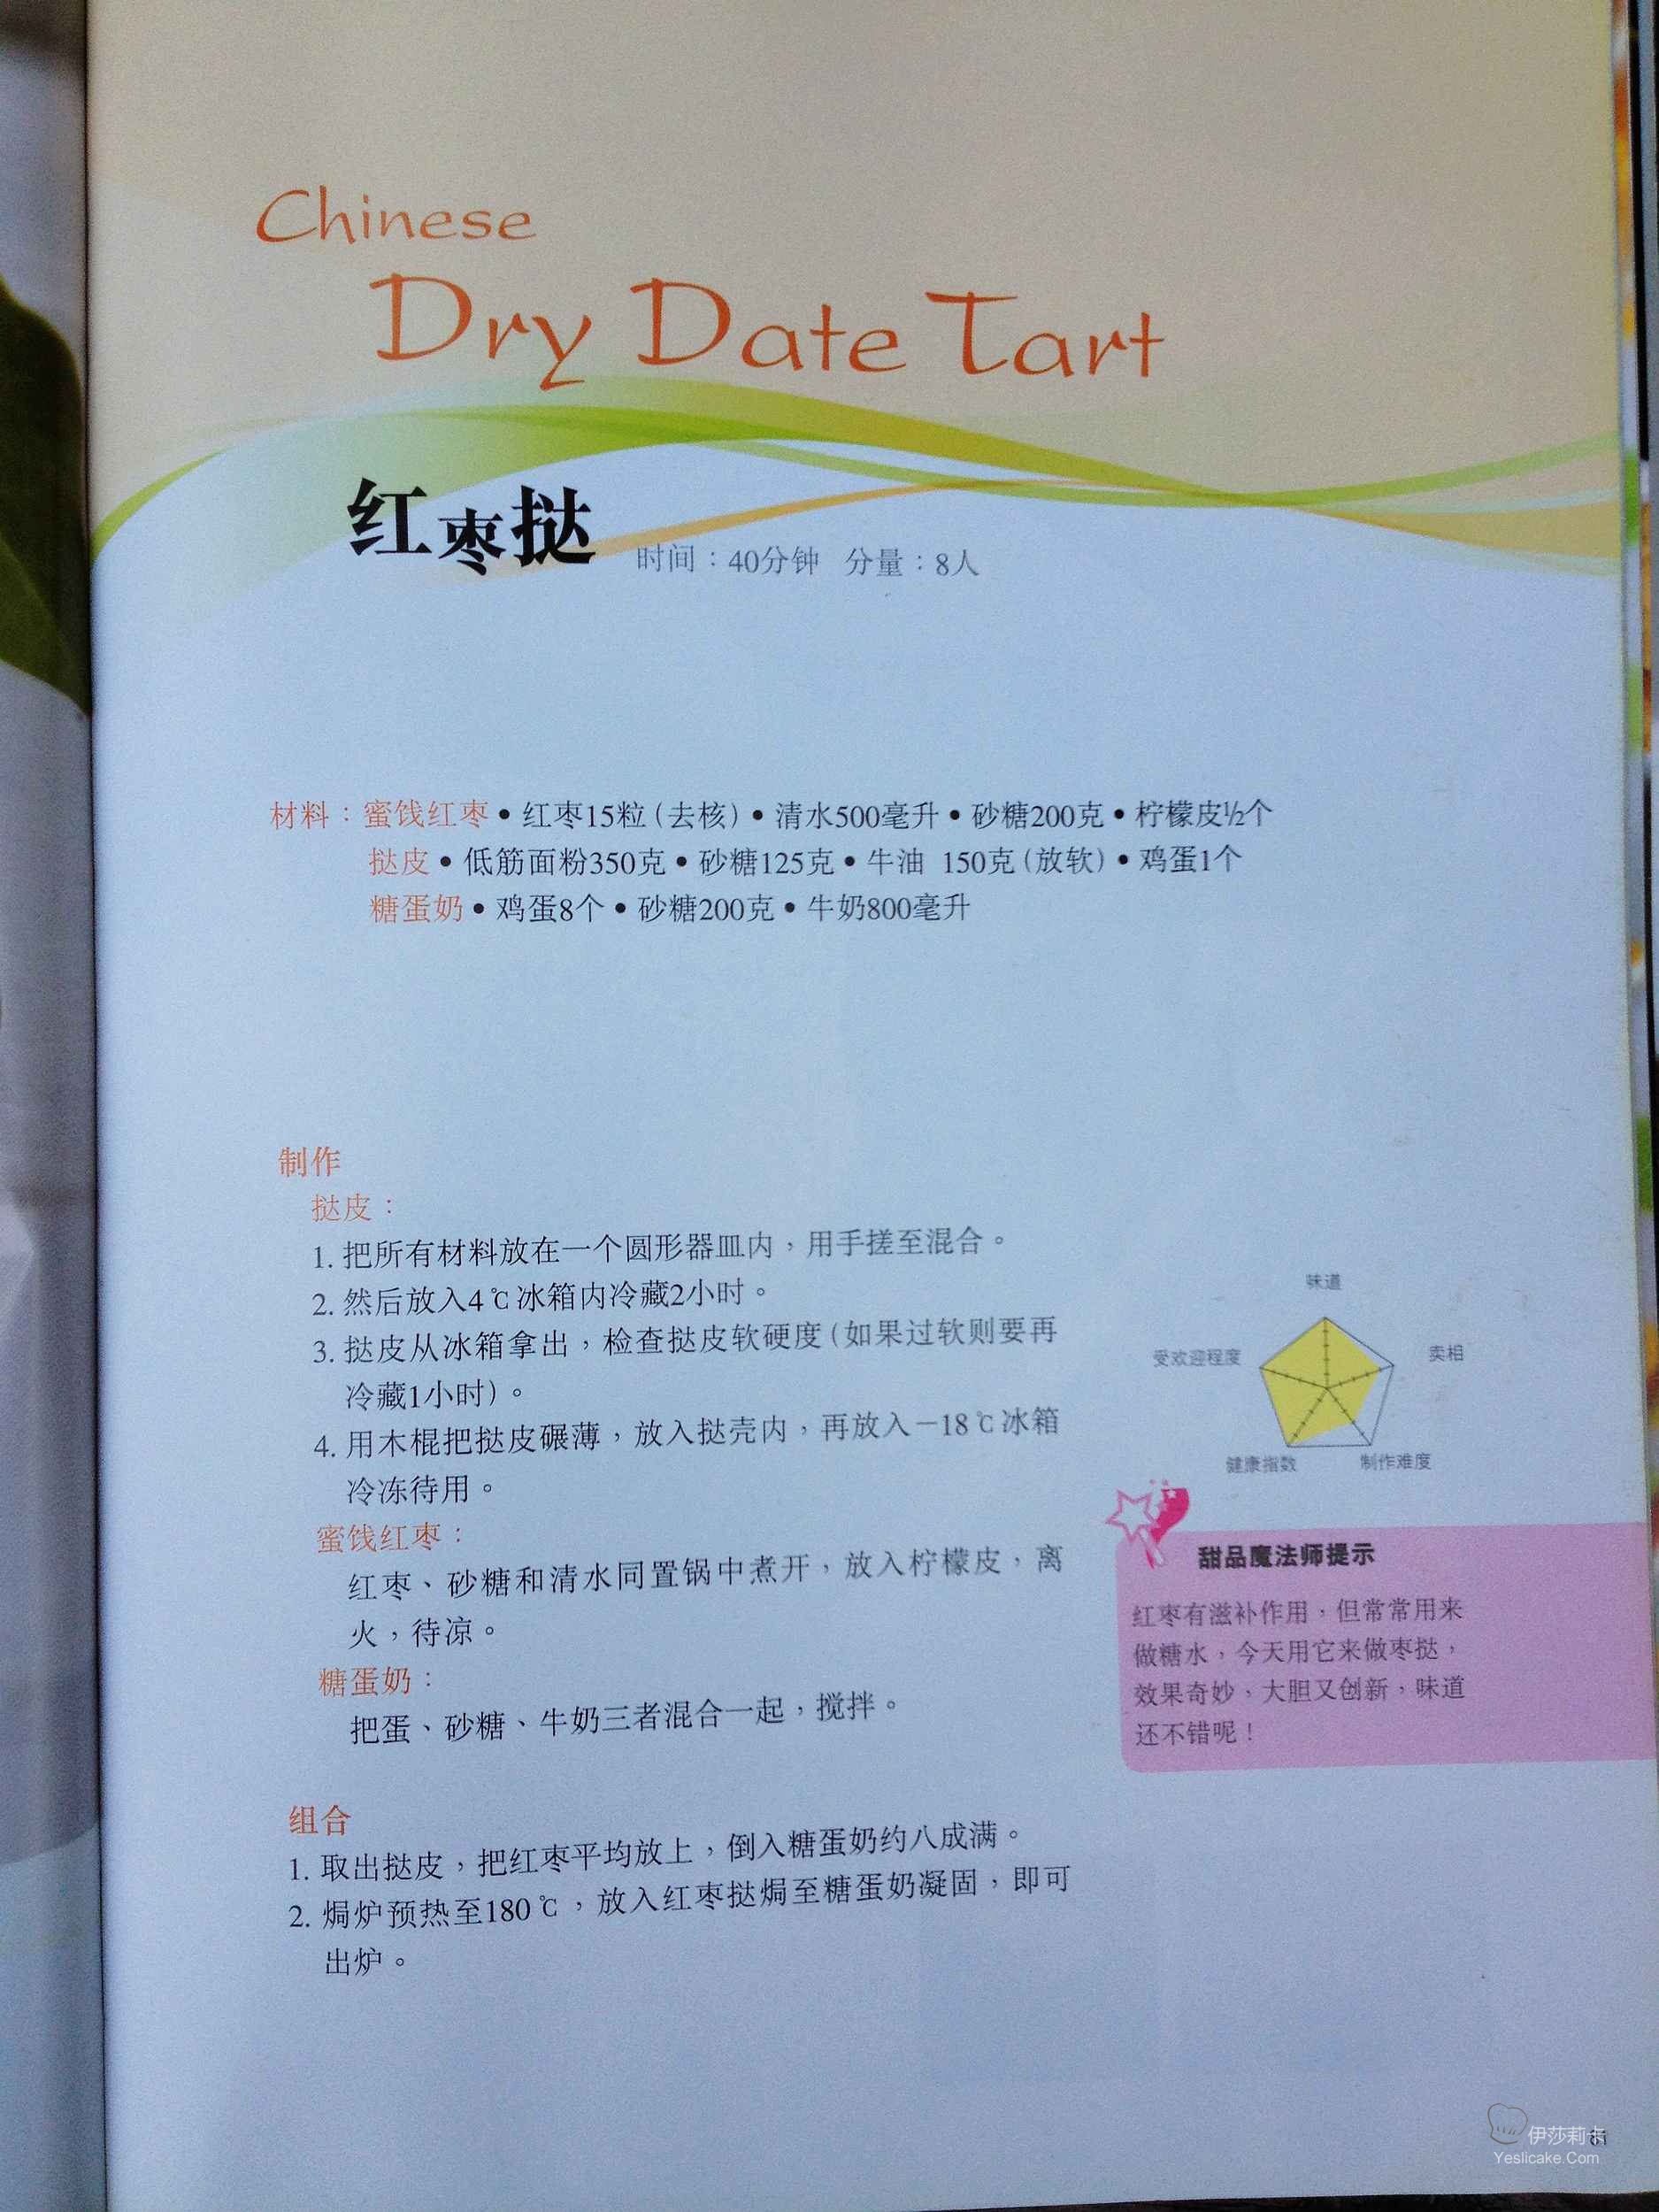 Chinese
Dry Date Tart
红枣挞 时间：40分钟 分量：8人
材料：蜜饯红枣•红枣15粒(去核)•清水500毫升•砂糖200克•柠檬皮½个
挞皮•低筋面粉350克•砂糖125克•牛油 150克(放软)•鸡蛋1个
糖蛋奶•鸡蛋8个•砂糖200克•牛奶800毫升
制作
挞皮：
1. 把所有材料放在一个圆形器皿内，用手搓至混合。
2. 然后放入4℃冰箱内冷藏2小时。
3. 挞皮从冰箱拿出，检查挞皮软硬度(如果过软则要再
冷藏1小时)。
4. 用木棍把挞皮碾薄，放入挞壳内，再放入－18℃冰箱
冷冻待用。
蜜饯红枣：
红枣、砂糖和清水同置锅中煮开，放入柠檬皮，离
火，待凉。
糖蛋奶：
把蛋、砂糖、牛奶三者混合一起，搅拌。
组合
1. 取出挞皮，把红枣平均放上，倒入糖蛋奶约八成满。
2. 焗炉预热至180℃，放入红枣挞焗至糖蛋奶凝固，即可
出炉。
味道
受欢迎程度
卖相
健康指数
制作难度
甜品魔法师提示
红枣有滋补作用，但常常用来
做糖水，今天用它来做枣挞，
效果奇妙、大胆又创新，味道
还不错呢！
伊莎莉卡
Yeslicake.Com